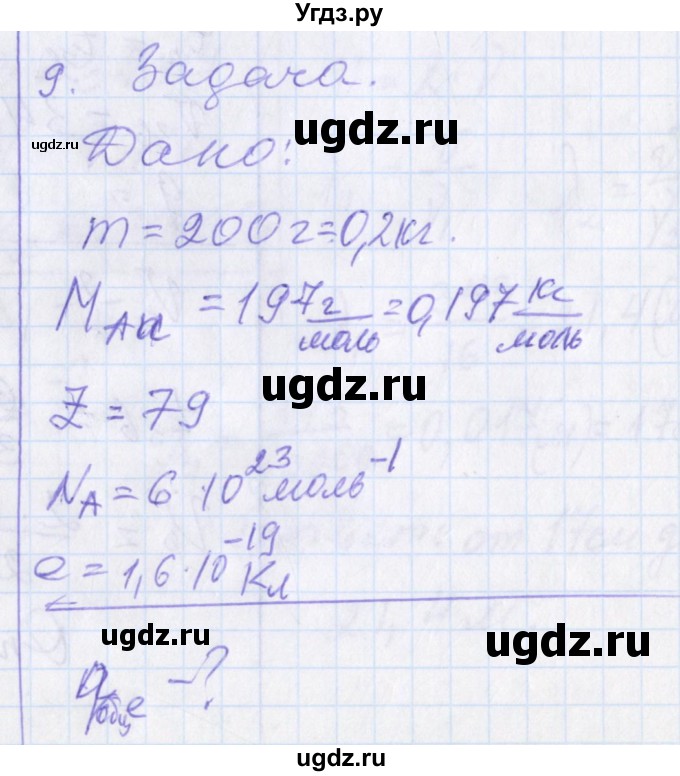 Угдз.ру
9. Задача.
ugdz.ru
ugdz.ru Дано:
m = 200 г = 0,2 кг.
M Au = 197 г/моль = 0,197 кг/моль
ugdz.ru
Z = 79
N_A = 6 · 10^23 моль^-1
e = 1,6 · 10^-19 Кл
ugdz.ru
ugdz.ru
q общ e - ?
ugdz.ru